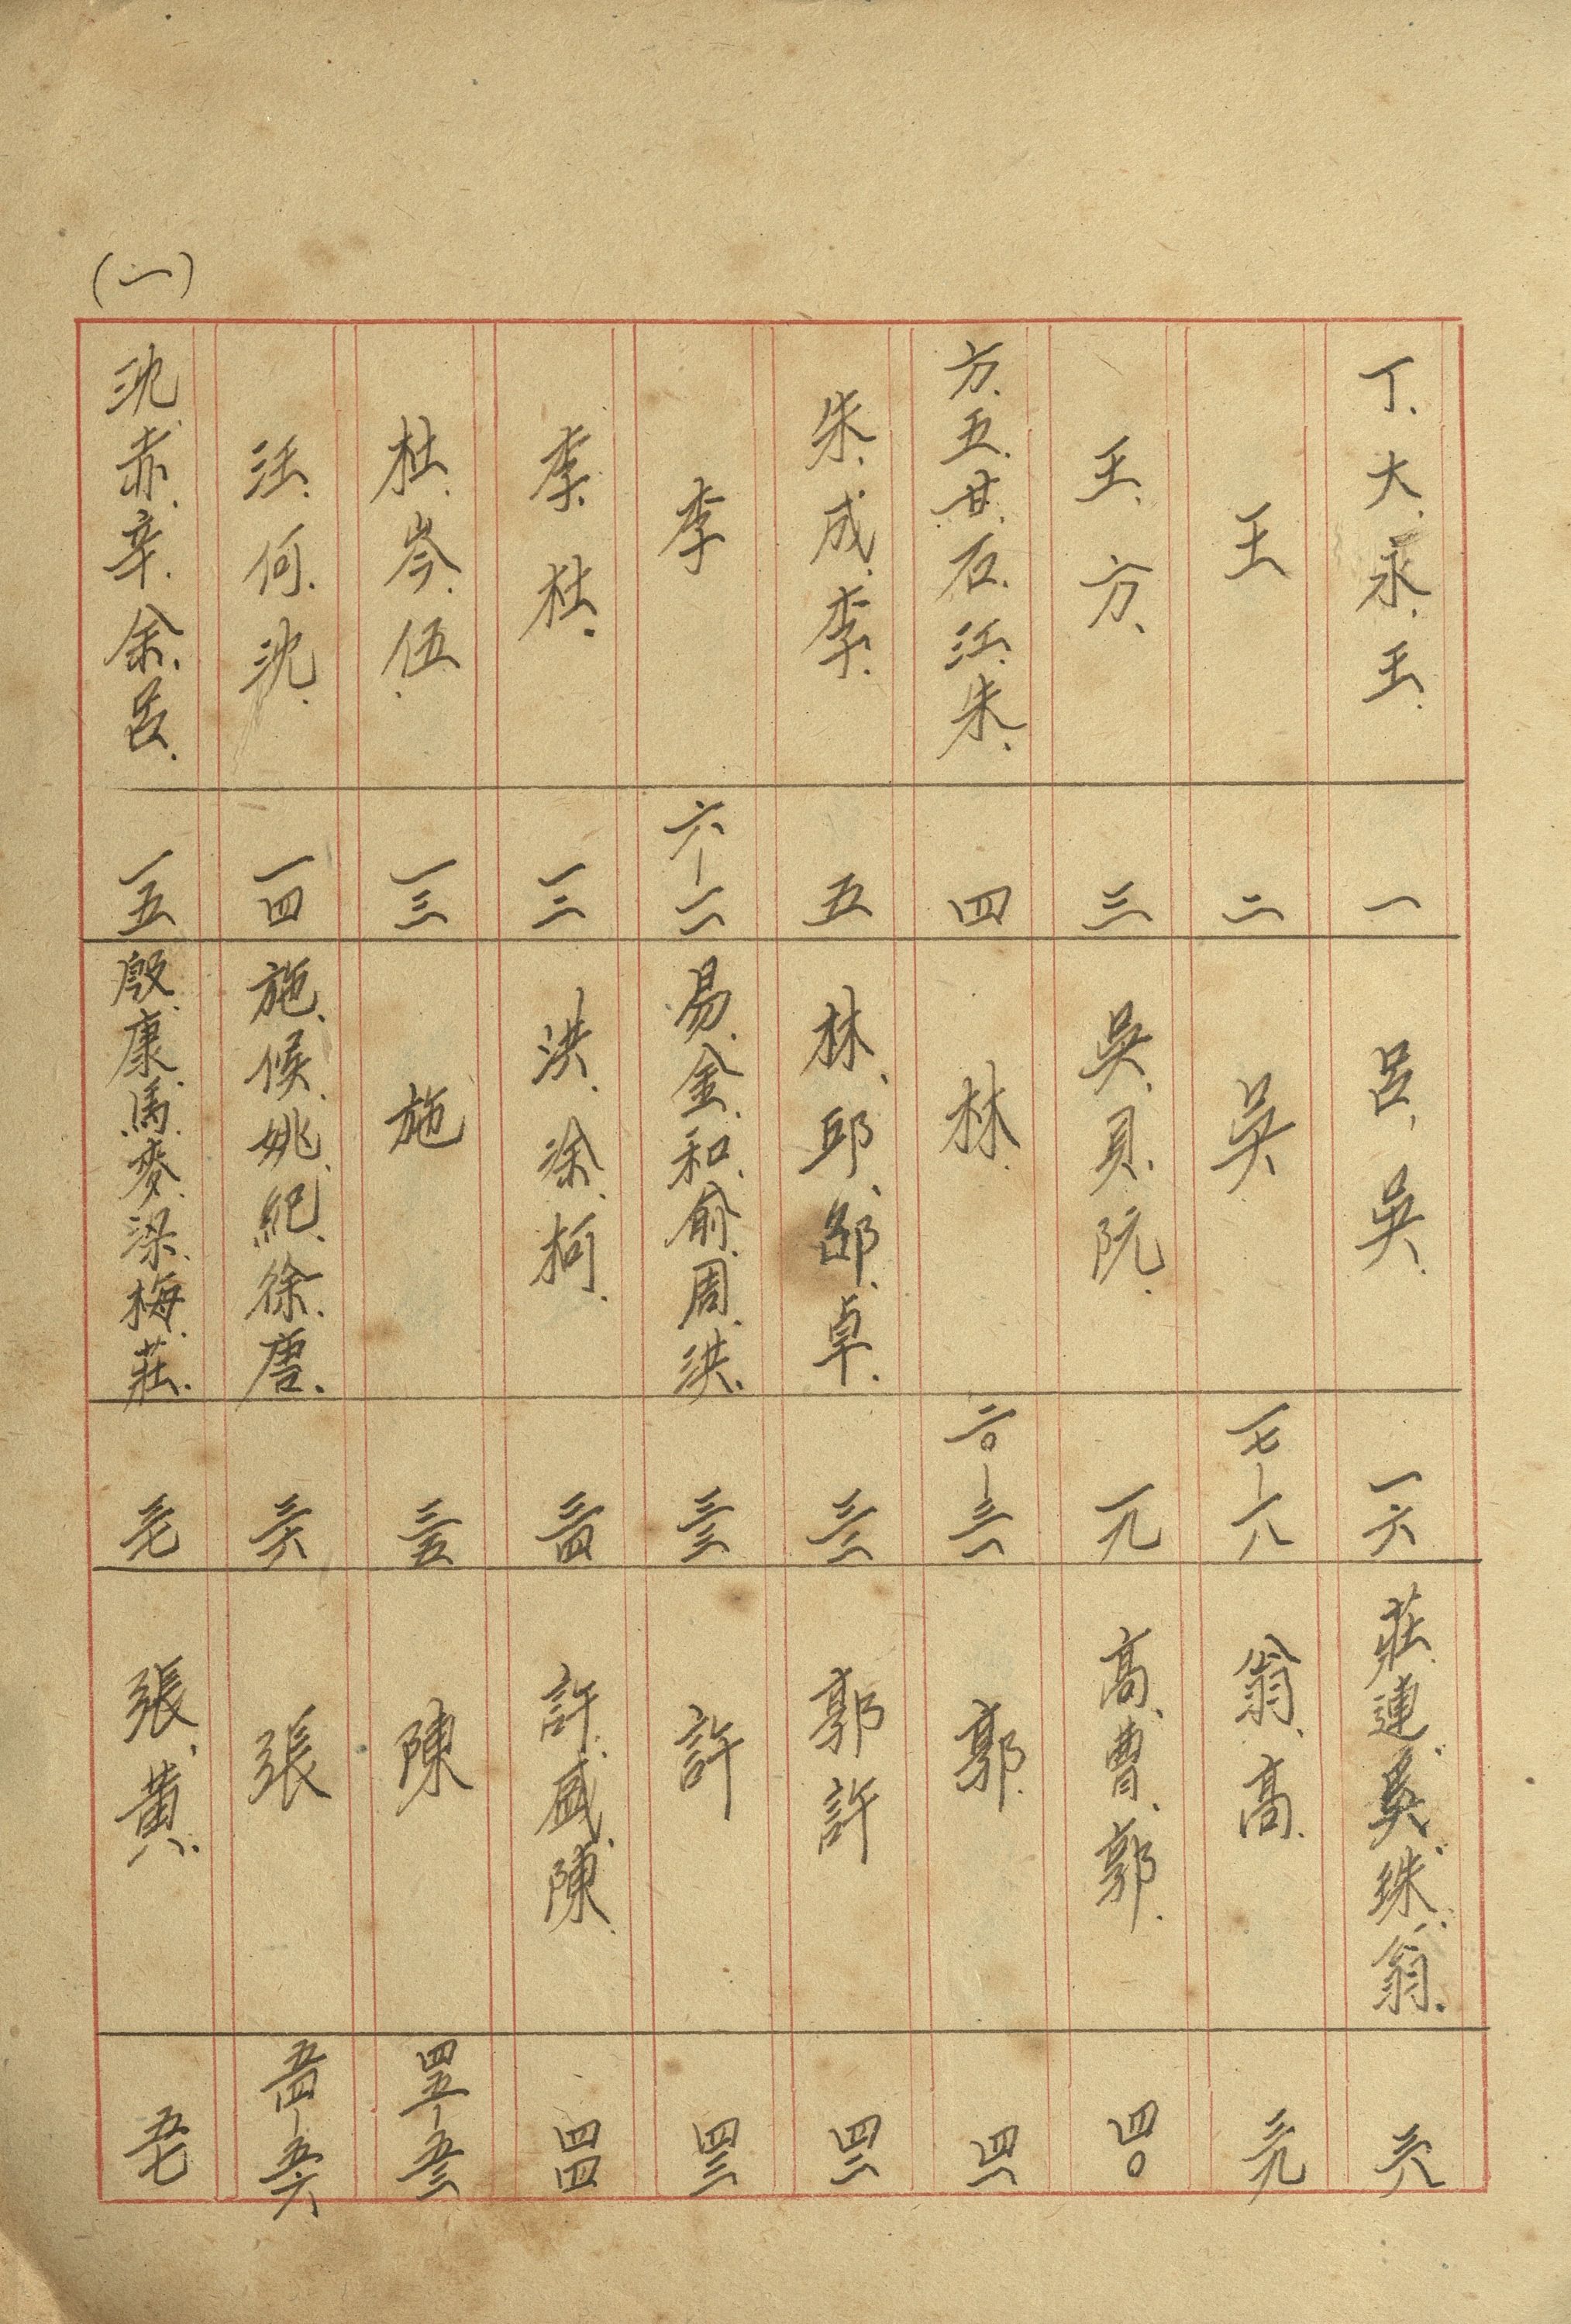 (一)
丁、大、永、王、
一
王
二
王、方、
三
方、五、甘、石、江、朱、
四
朱、成、李、
五
李
六-一一
李、杜、
一二
杜、岑、伍、
一三
汪、何、沈、
一四
沈、赤、辛、余、呂、
一五
呂、吳、
一六
吳
一七-一八
吳、貝、阮、
一九
林、
二〇-三一
林、邱、邵、卓、
三二
易、金、和、俞、周、洪、
三三
洪、涂、柯、
三四
施
三五
施、候、姚、紀、徐、唐、
三六
殷、康、馬、麥、梁、梅、莊、
三七
莊、連、吳、珠、翁、
三八
翁、高、
三九
高、曹、郭、
四〇
郭、
四一
郭許
四二
許
四三
許、盛、陳、
四四
陳
四五-五三
張
五四-五六
張、黃、
五七